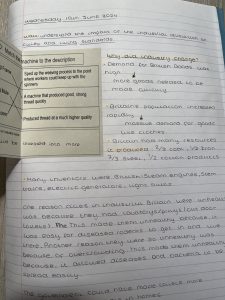 Wednesday 19th June 2024
understand the impact of the industrial revolution on
cities and living standards
machine to the description
Speed up the weaving process in the past
where workers could keep up with the
spinners
A machine that produced good, strong
thread quickly
Produced thread at a much higher quality
Why did industry change?
- Demand for British goods was
high
more goods needed to be
made quickly
- Britain's population increased
rapidly
massive demand for goods
like clothes
- Britain had many resources
& produced 2/3 coal, 1/2 iron,
2/3 steel, 1/2 cotton products
- Many inventions were British: steam engines, Stem
One reason cities in industrial Britain were unhealthy
was because they had
This made them unhealthy because it
was easy for diseased rodents to get in and
there. Another reason they were so unhealthy was
because of overcrowding. This made them unhealthy
because it allowed diseases and bacteria to be
spread easily.
The government could have made
in homes